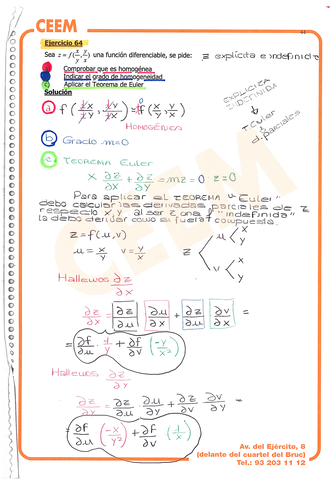 CEEM
44
Ejercicio 64
Sea z = f(x/y, y/x) una función diferenciable, se pide: z explícita e indefinida
a Comprobar que es homogénea
b Indicar el grado de homogeneidad
c Aplicar el Teorema de Euler
Solución
EXPLÍCITA
INDEFINIDA
↓
T. Euler
y
d. parciales
a) f(λx/λy, λy/λx) = λ⁰ f(x/y, y/x)
HOMOGÉNEA
b) Grado m=0
c) TEOREMA Euler
x ∂z/∂x + ∂z/∂y = mz = 0·z = 0
Para aplicar el TEOREMA "Euler"
debo calcular las derivadas parciales de z
respecto x,y al ser z una f "indefinida"
la debo derivar como si fuera f compuesta.
z = f(u,v)
u = x/y v = y/x
z < u < x y
v < x y
Hallemos ∂z/∂x
∂z/∂x = ∂z/∂u ∂u/∂x + ∂z/∂v ∂v/∂x =
= ∂f/∂u · 1/y + ∂f/∂v (-y/x²)
Hallemos ∂z/∂y
∂z/∂y = ∂z/∂u · ∂u/∂y + ∂z/∂v ∂v/∂y =
= ∂f/∂u (-x/y²) + ∂f/∂v (1/x)
Av. del Ejército, 8
(delante del cuartel del Bruc)
Tel.: 93 203 11 12